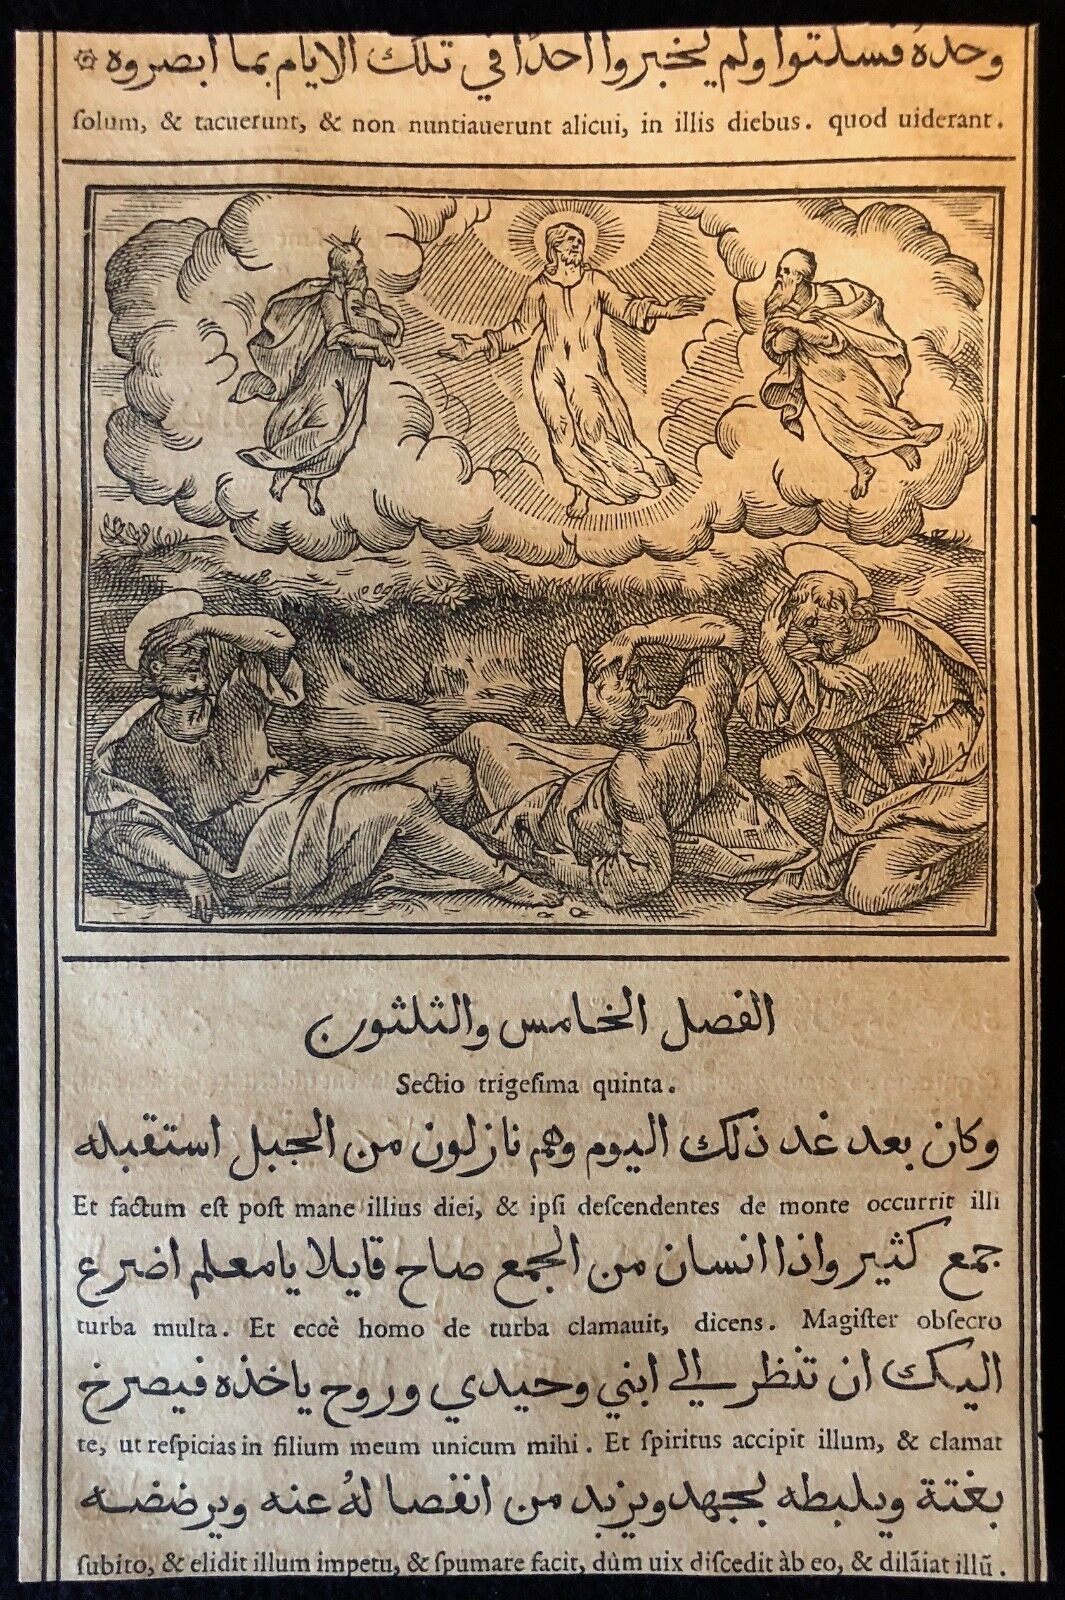 وحدهُ فسكتوا ولم يخبروا احدًا في تلك الايام بما ابصروه ۞
ſolum, & tacuerunt, & non nuntiauerunt alicui, in illis diebus. quod uiderant.
الفصل الخامس والثلثون
Sectio trigeſima quinta.
وكان بعد غد ذلك اليوم وهم نازلون من الجبل استقبله
Et factum eſt poſt mane illius diei, & ipſi deſcendentes de monte occurrit illi
جمع كثير واذا انسان من الجمع صاح قايلا يا معلم اضرع
turba multa. Et eccè homo de turba clamauit, dicens. Magiſter obſecro
اليك ان تنظر الي ابني وحيدي وروح ياخذه فيصرخ
te, ut reſpicias in filium meum unicum mihi. Et ſpiritus accipit illum, & clamat
بغتة ويلبطه بجهد ويزبد من انفصا لهُ عنه ويرضضه
ſubito, & elidit illum impetu, & ſpumare facit, dùm uix diſcedit àb eo, & dilãiat illũ.